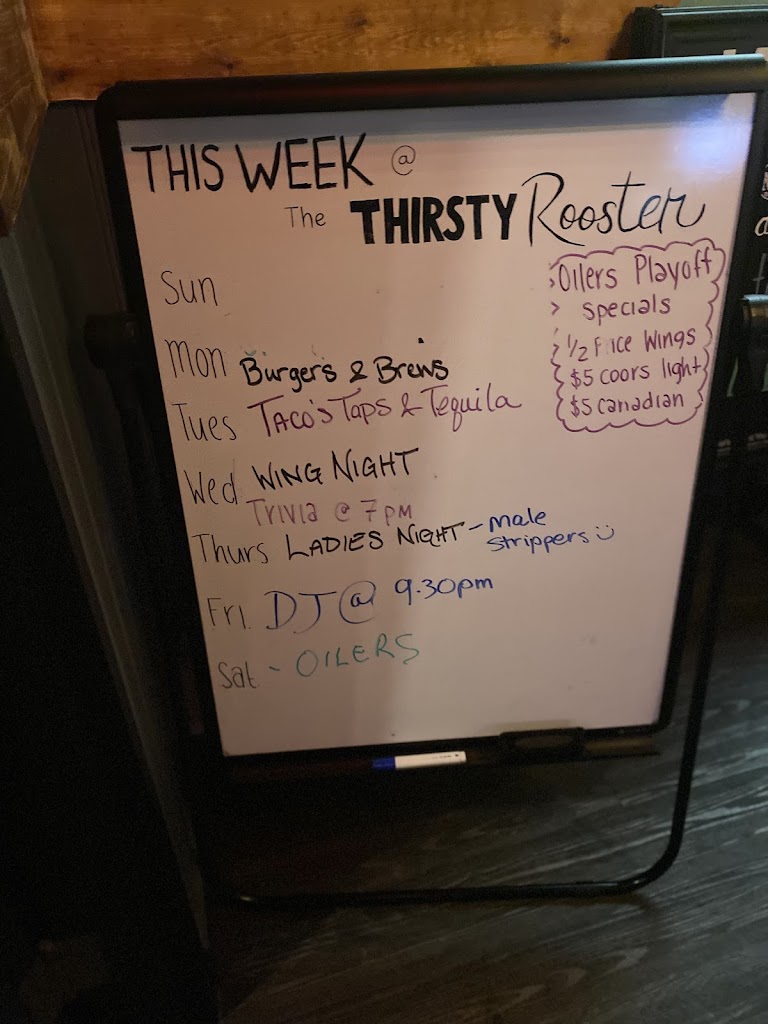 THIS WEEK @
The THIRSTY Rooster
Sun
Mon Burgers & Brews
Tues Taco's Taps & Tequila
Wed WING NIGHT
Trivia @ 7pm
Thurs LADIES NIGHT - male
strippers :)
Fri. DJ @ 9.30pm
Sat - OILERS
> Oilers Playoff
> specials
> 1/2 Price Wings
$5 coors light
$5 canadian